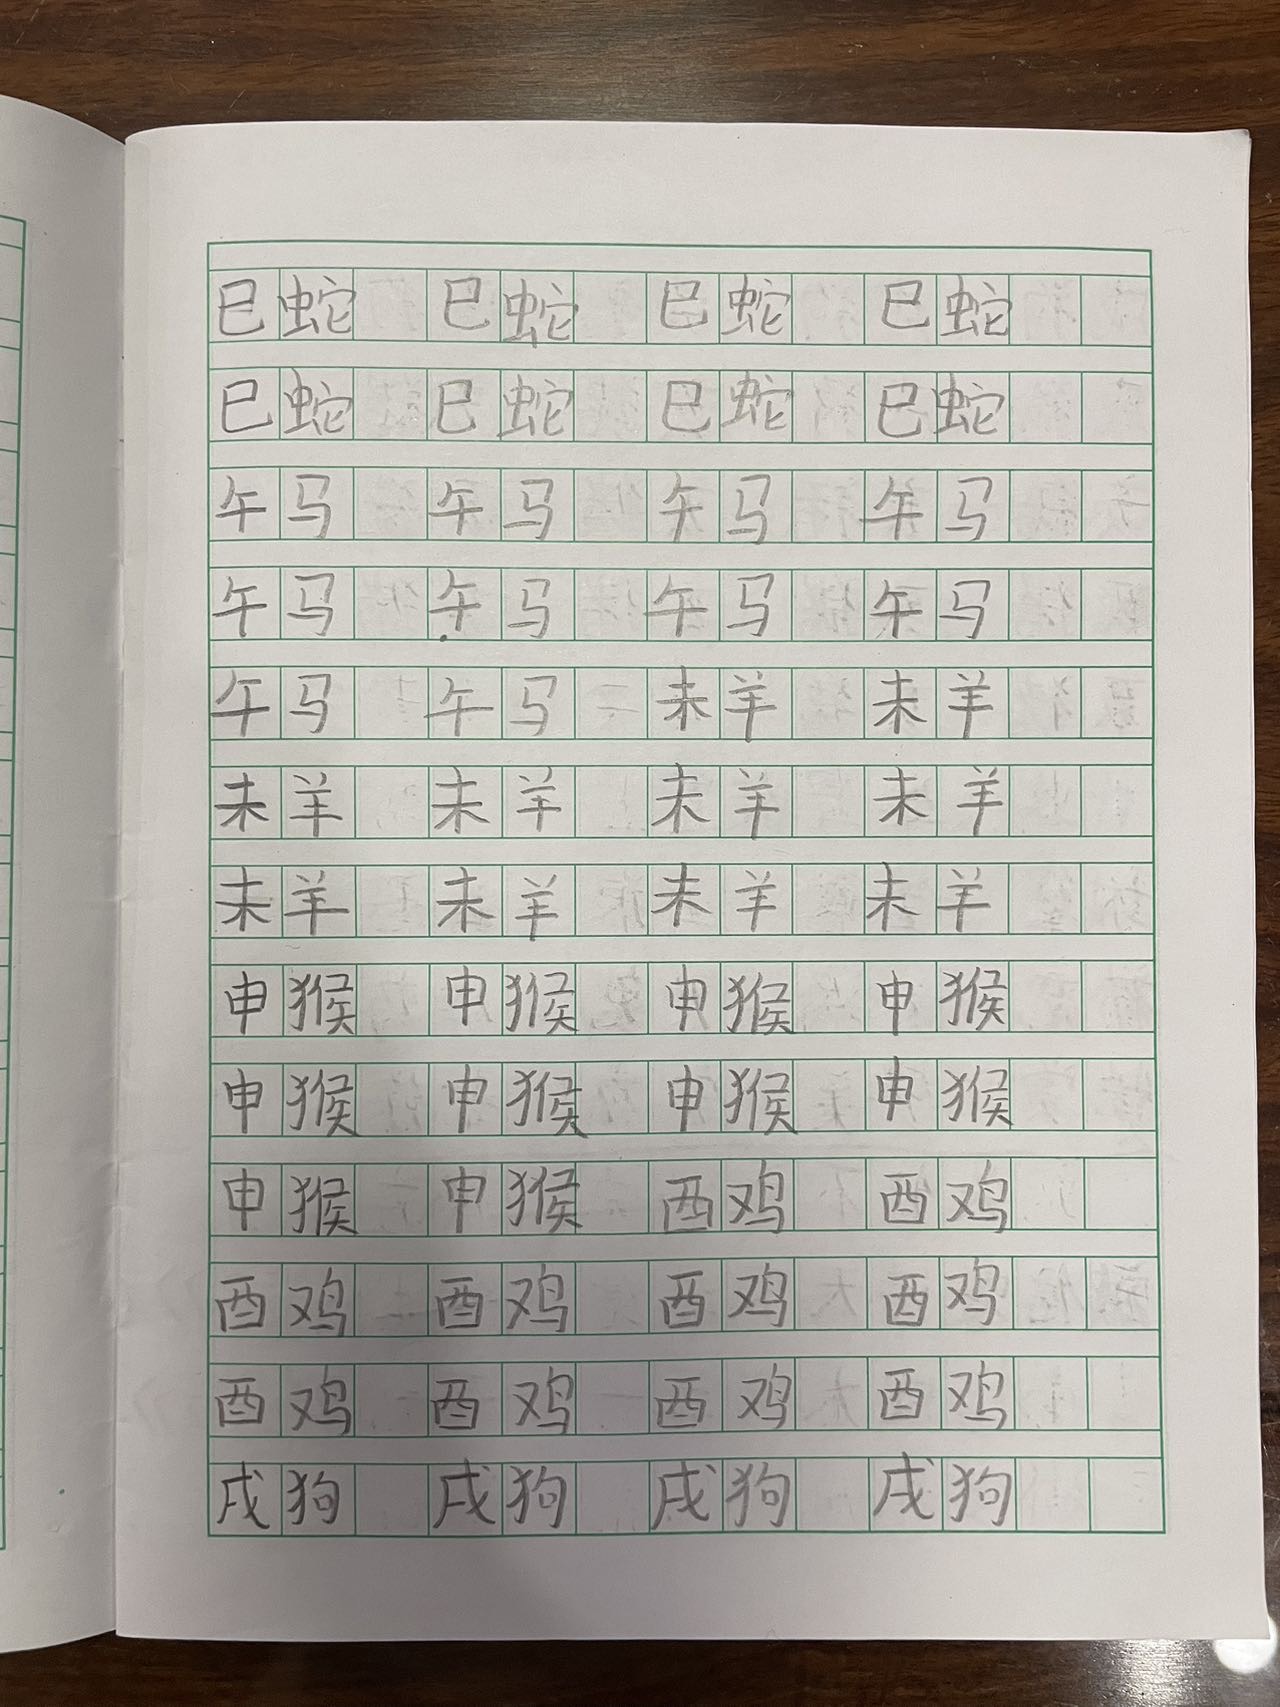 巳蛇 巳蛇 巳蛇 巳蛇
巳蛇 巳蛇 巳蛇 巳蛇
午马 午马 午马 午马
午马 午马 午马 午马
午马 午马 未羊 未羊
未羊 未羊 未羊 未羊
未羊 未羊 未羊 未羊
申猴 申猴 申猴 申猴
申猴 申猴 申猴 申猴
申猴 申猴 酉鸡 酉鸡
酉鸡 酉鸡 酉鸡 酉鸡
酉鸡 酉鸡 酉鸡 酉鸡
戌狗 戌狗 戌狗 戌狗